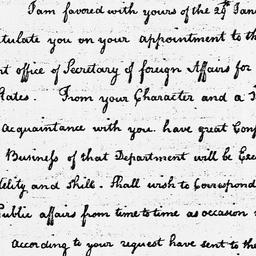 I am favored with yours of the 24 Jan
tulate you on your appointment to th
nt office of Secretary of foreign Affairs for
States. From your Character and a
Acquaintance with you. have great Conf
Business of that Department will be Exe
delity and Skill. Shall wish to Correspond
Public affairs from time to time as occasion
According to your request have sent to the